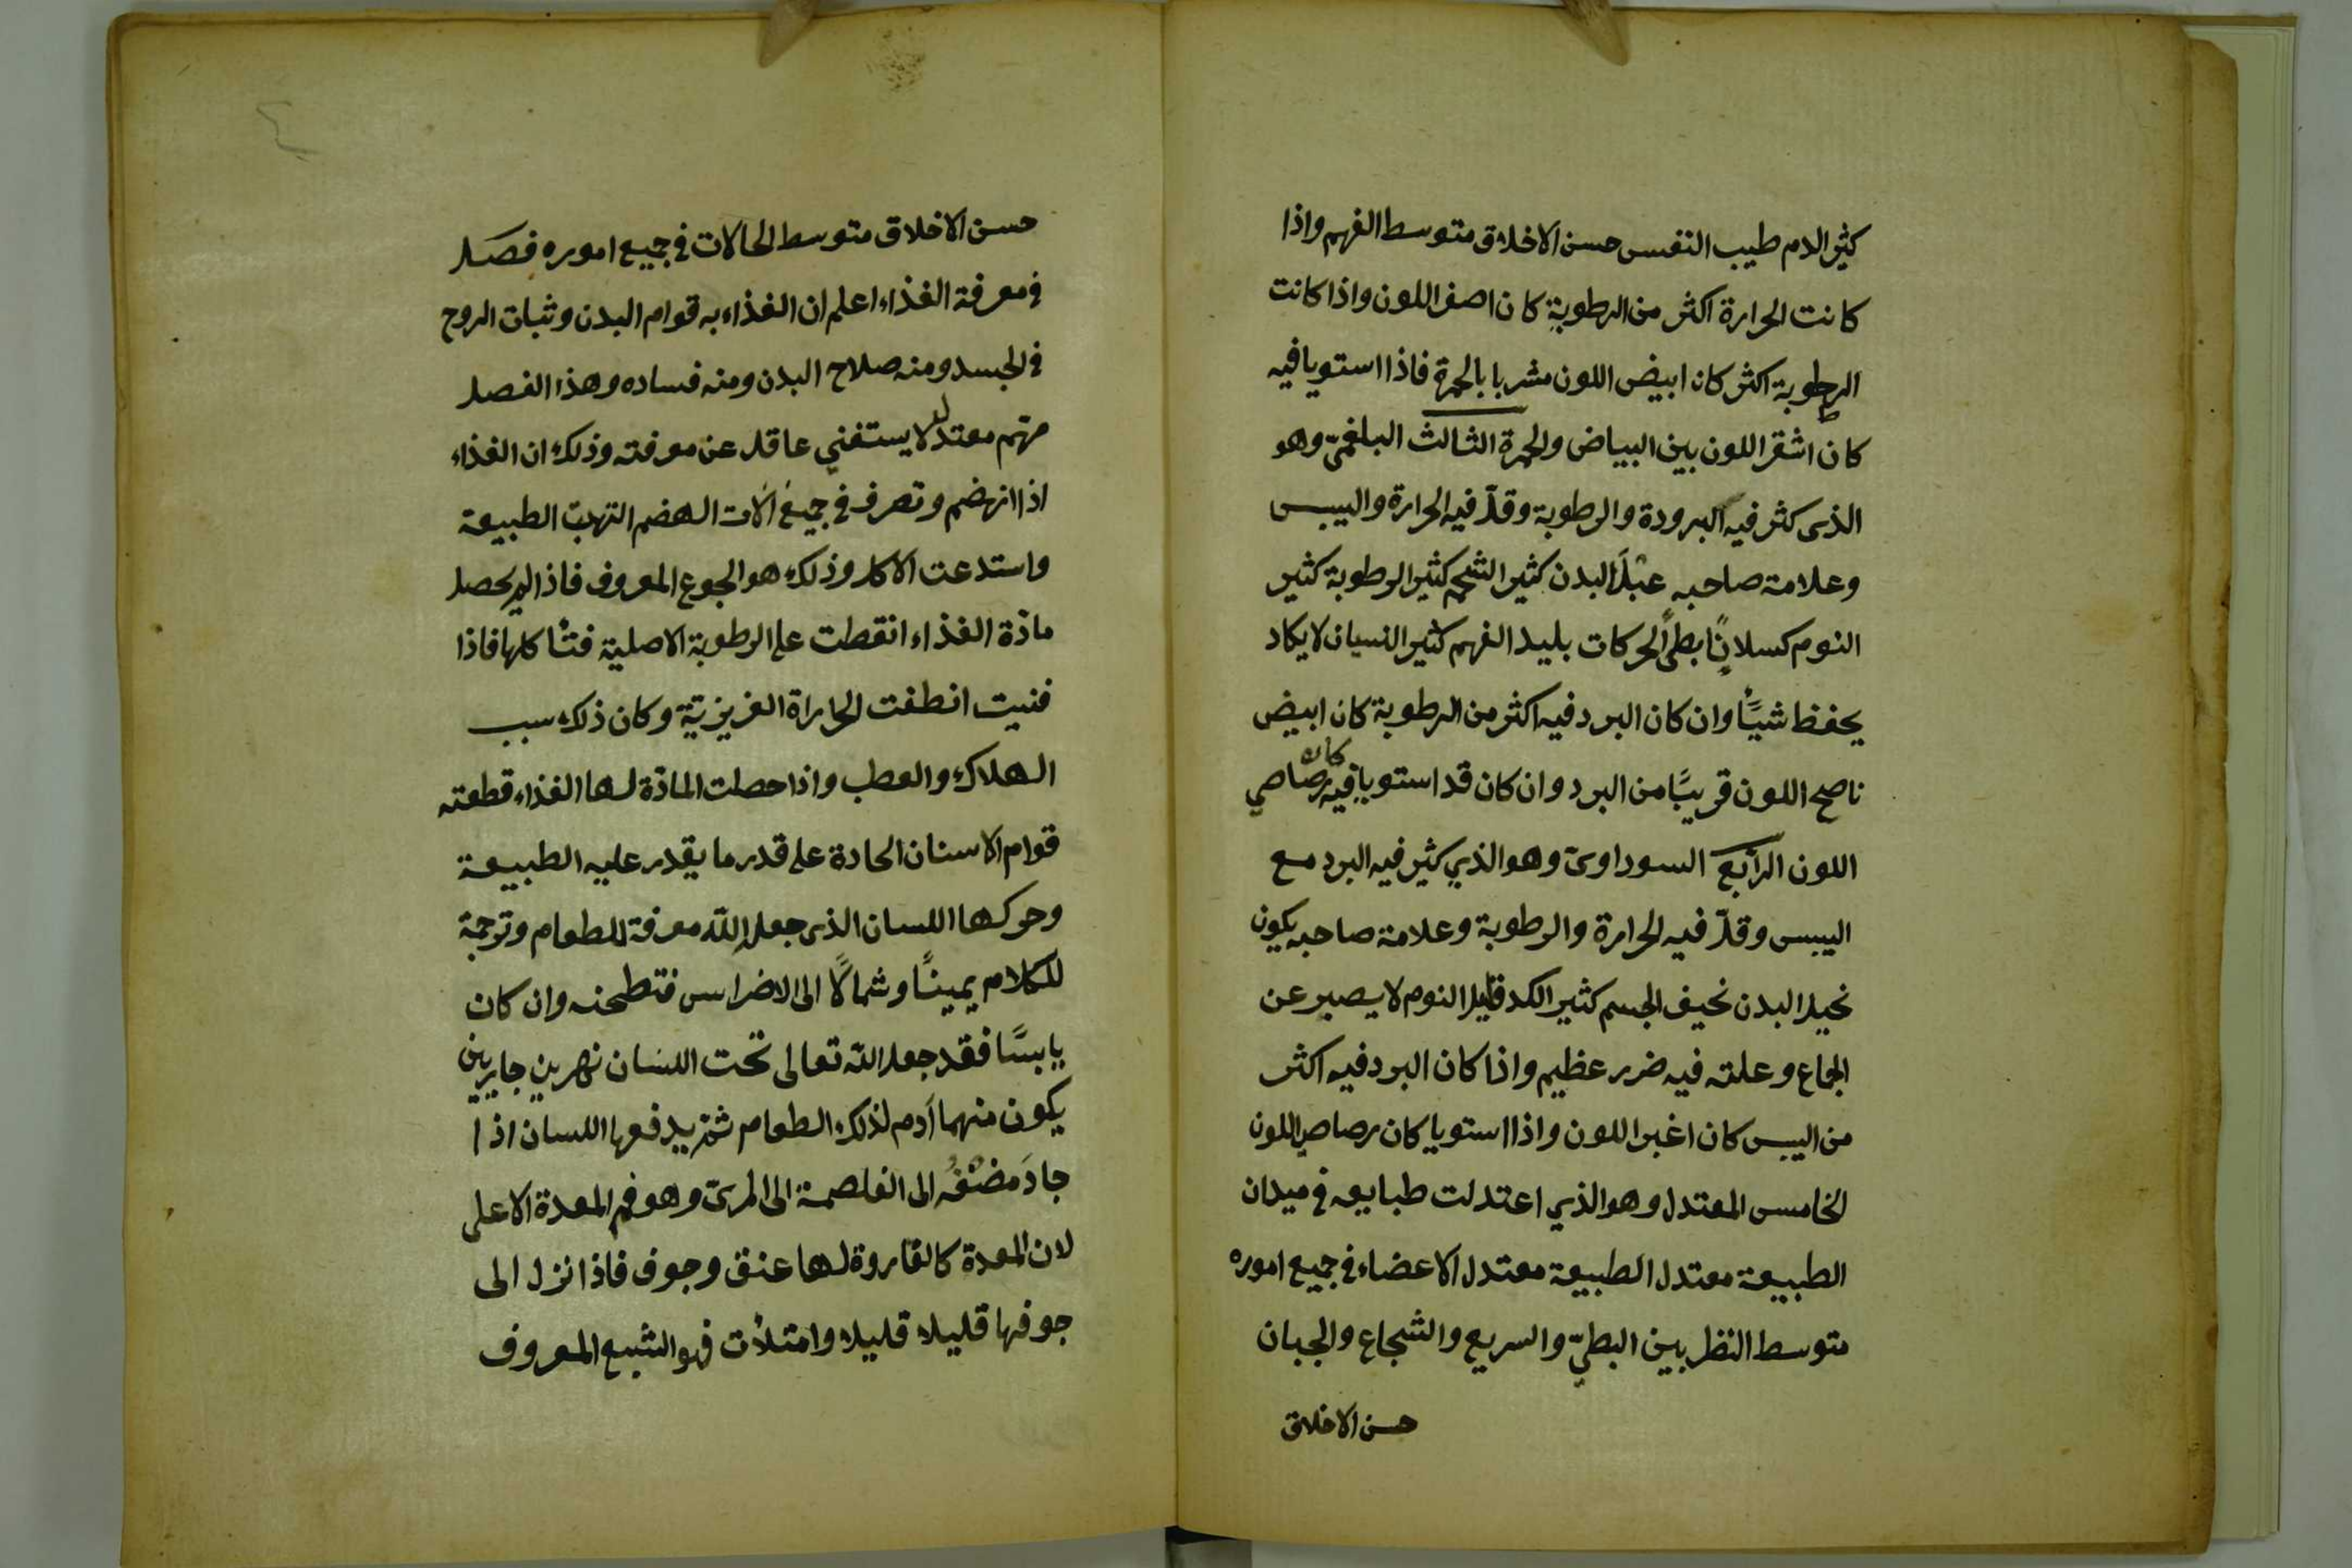 كثير الدم طيب النفس حسن الاخلاق متوسط الفهم واذا
كانت الحرارة اكثر من الرطوبة كان اصفر اللون واذا كانت
الرطوبة اكثر كان ابيض اللون مشربا بالحمرة فاذا استويا فيه
كان اشقر اللون بين البياض والحمرة الثالث البلغمىّ وهو
الذى كثر فيه البرودة والرطوبة وقلّ فيه الحرارة واليبس
وعلامة صاحبه عبْلَ البدن كثير الشحم كثير الرطوبة كثير
النوم كسلانًا بطئَ الحركات بليد الفهم كثير النسيان لا يكاد
يحفظ شيئًا وان كان البرد فيه اكثر من الرطوبة كان ابيض
ناصح اللون قريبًا من البرد وان كان قد استويا فيه كان رصاصي
اللون الرابع السوداوىّ وهو الذي كثير فيه البرد مع
اليبس وقلّ فيه الحرارة والرطوبة وعلامة صاحبه يكون
نحيل البدن نحيف الجسم كثير الكد قليل النوم لا يصبر عن
الجماع وعلته فيه ضرر عظيم واذا كان البرد فيه اكثر
من اليبس كان اغبر اللون واذا استويا كان رصاصي اللون
الخامس المعتدل وهو الذي اعتدلت طبايعه في ميدان
الطبيعة معتدل الطبيعة معتدل الاعضاء في جميع اموره
متوسط النظر بين البطىّ والسريع والشجاع والجبان
حسن الاخلاق
حسن الاخلاق متوسط الحالات في جميع اموره فصل
في معرفة الغذاء اعلم ان الغذاء به قوام البدن وثبات الروح
في الجسد ومنه صلاح البدن ومنه فساده وهذا الفصل
مهم معتدل لا يستغني عاقل عن معرفته وذلك ان الغذاء
اذا انهضم وتصرف في جميع آلات الهضم التهبت الطبيعة
واستدعت الاكل وذلك هو الجوع المعروف فاذا لم يحصل
مادّة الغذاء انقطت على الرطوبة الاصلية فتأكلها فاذا
فنيت انطفت الحراراة الغريزيّة وكان ذلك سبب
الهلاك والعطب واذا حصلت المادّة لها الغذاء قطعته
قوام الاسنان الحادة على قدر ما يقدر عليه الطبيعة
وحركها اللسان الذى جعله الله معرفة للطعام وترجمة
للكلام يمينًا وشمالًا الى الاضراس فتطحنه وان كان
يابسًا فقد جعل الله تعالى تحت اللسان نهرين جاريين
يكون منهما أدم لذلك الطعام ثم يدفعها اللسان اذا
جادَ مضْغُه الى الغلصمة الى المرىّ وهو فم المعدة الاعلى
لان المعدة كالقاروة لها عنق وجوف فاذا نزل الى
جوفها قليلا قليلا وامتلأت فهو الشبع المعروف